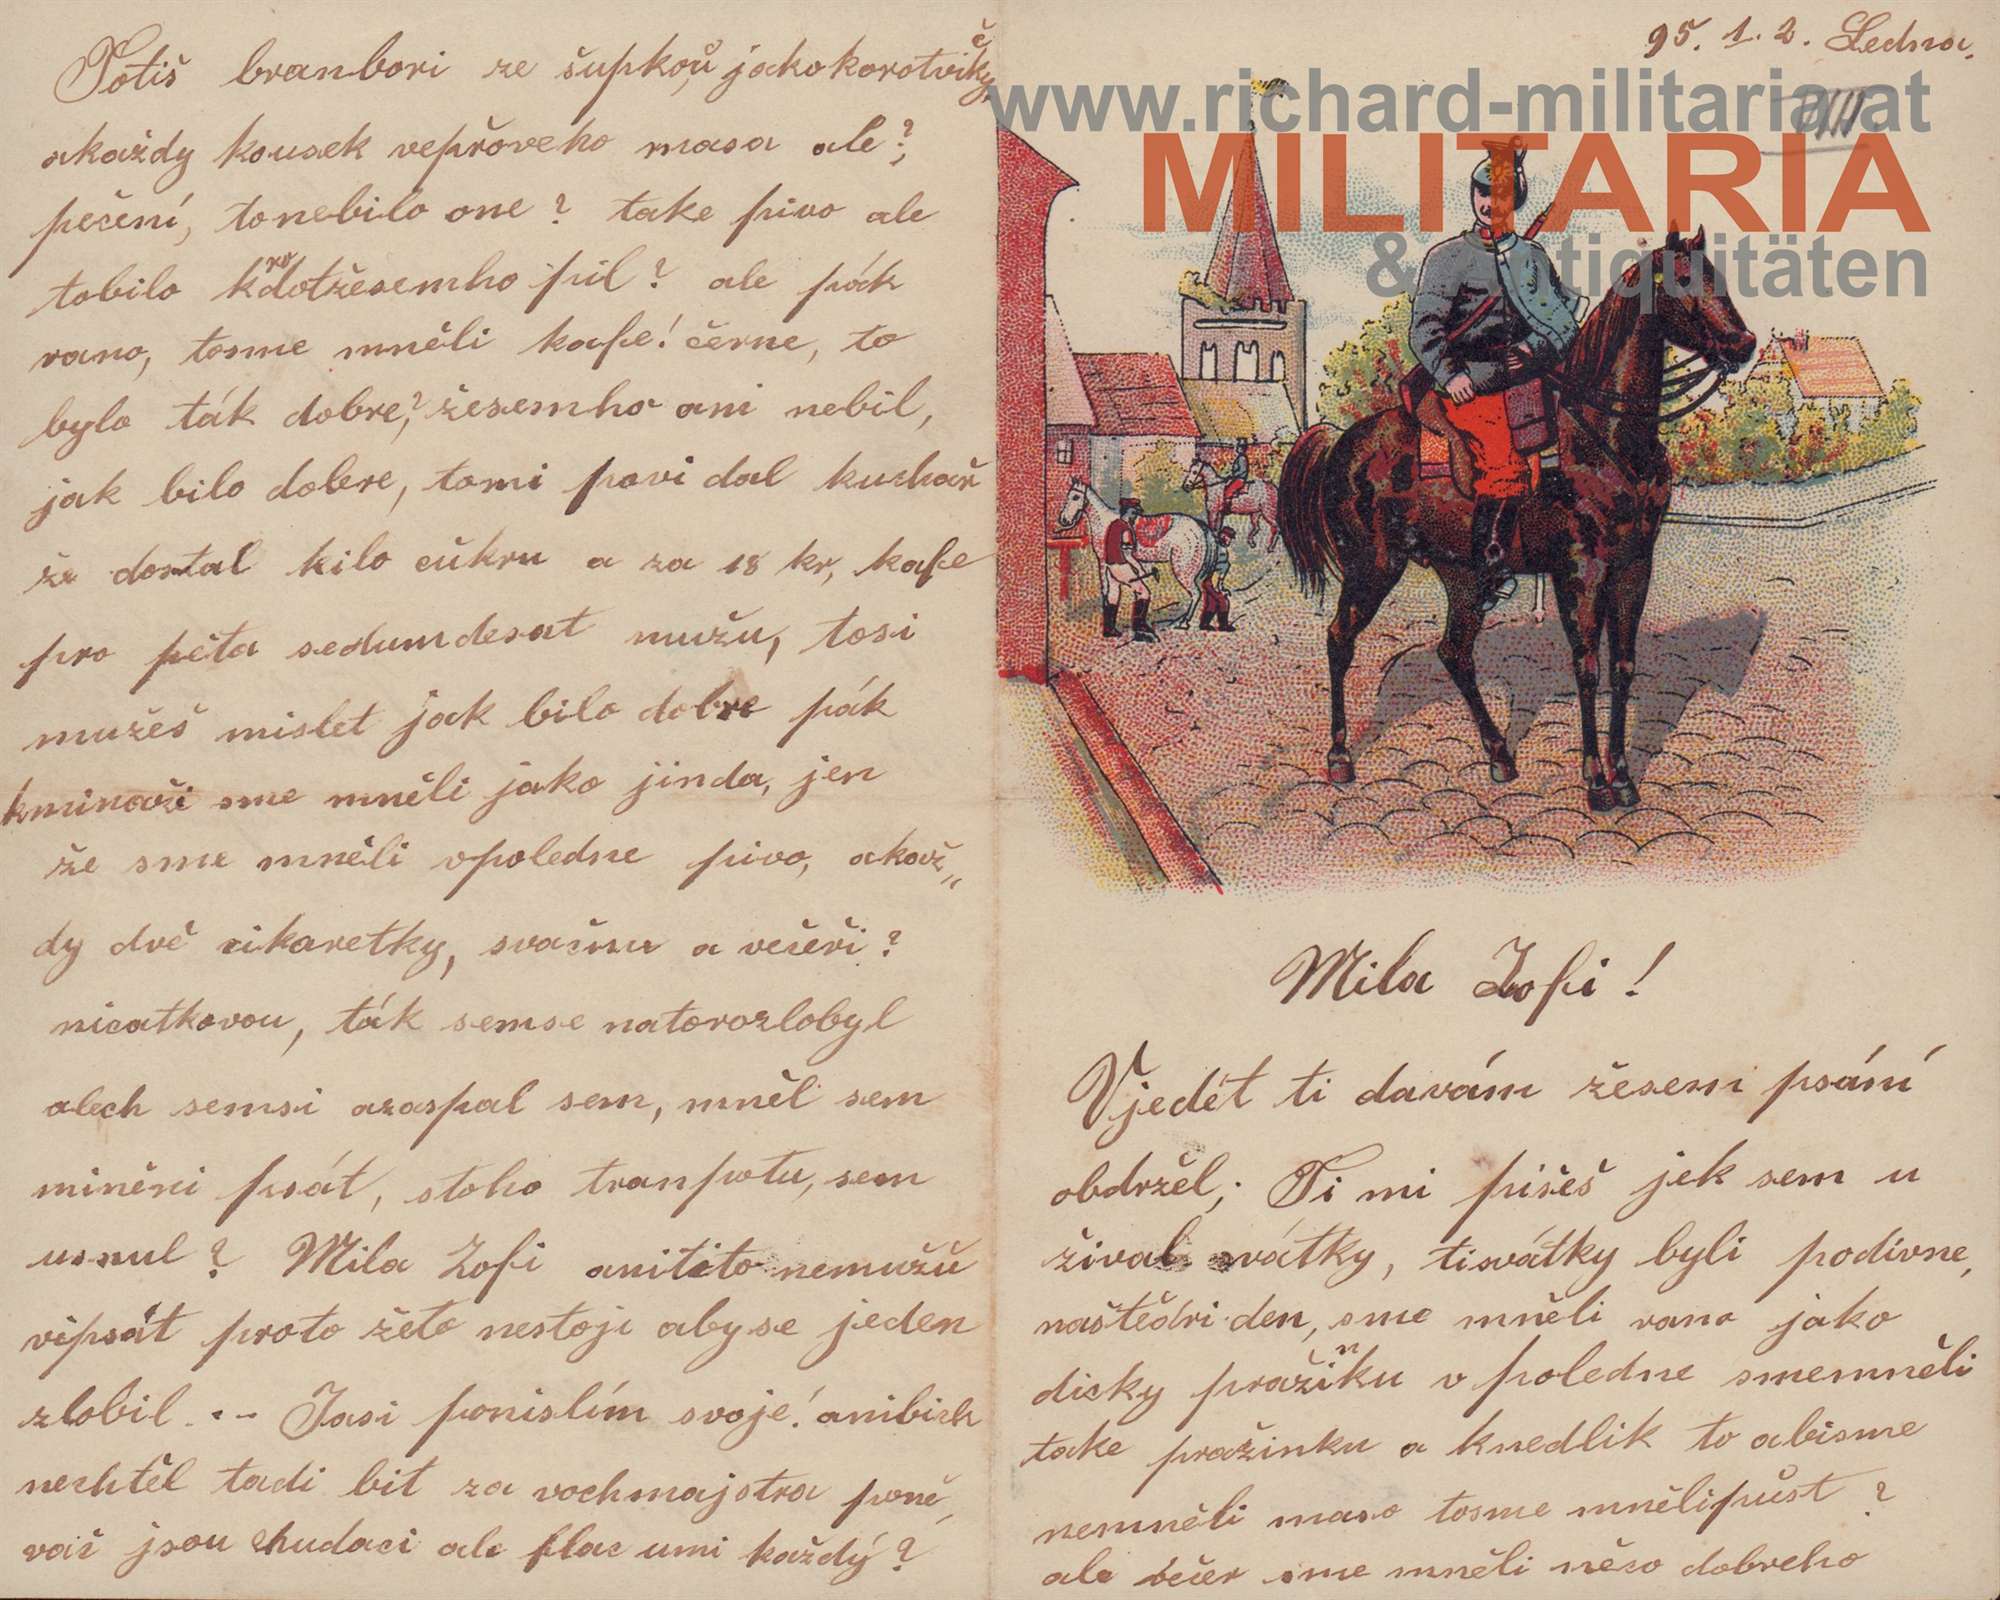 95. 1. 2. Ledna.
www.richard-militaria.at
MILITARIA
& Antiquitäten
Mila Zofi!
Vjedět ti davám žesem psání
obdržěl; Ti mi pišěš jek sem u
žival svátky, tisvátky byli podivne,
naštědri den, sme mněli rano jako
dicky pražinku v poledne smemněli
take pražinku a knedlik to abisme
nemněli maso tosme mnělipůst ?
ale večer sme mněli něco dobreho
Totiš branbori ze šupkoů, jako korotvičky,
akaždy kousek vepřoveho masa ale?,
pečení, tonebilo one? take pivo ale
tobilo žesemho pil? ale pák
rano, tosme mněli kafe! černe, to
bylo ták dobre,? žesemho ani nebil,
jak bilo dobre, tomi povi dal kuchař
že dostal kilo cůkru a za 18 kr, kafe
pro pěta sedumdesat mužu, tosi
mužeš mislet jak bilo dobre pák
sme mněli jako jinda, jen
že sme mněli vpoledne pivo, akaž„
dy dvě cikaretky, svačinu a večeři?
nicatkovou, ták semse natorozlobyl
alech semsi azaspal sem, mněl sem
miněni psát, stoho tranpotu, sem
usnul? Mila Zofi anitito nemužů
vipsát proto žeto nestoji abyse jeden
zlobil .-- Jasi ponislím svoje! anibich
nechtěl tadi bit za vachmajstra poně,
vač jsou chudaci ale flac umi každý?